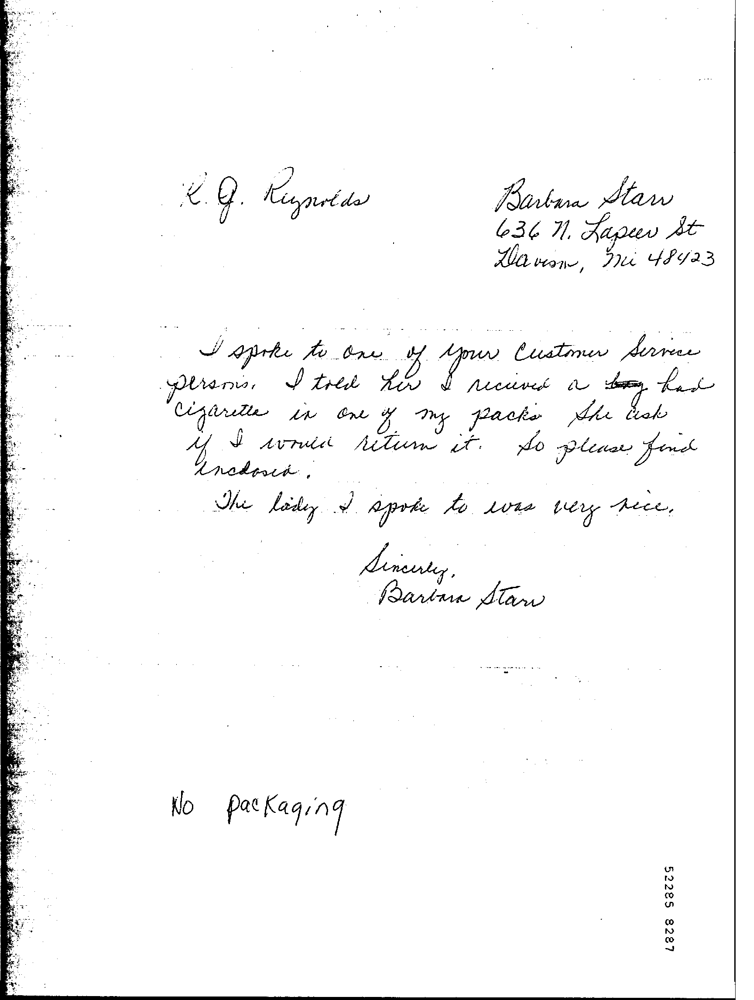 R. J. Reynolds
Barbara Starr
636 N. Lapeer St
Davison, Mi 48423
I spoke to one of your Customer Service
persons. I told her I recieved a bad
cigarette in one of my packs She ask
if I would return it. So please find
inclosed.
The lady I spoke to was very nice.
Sincerly,
Barbara Starr
No packaging
52285 8287